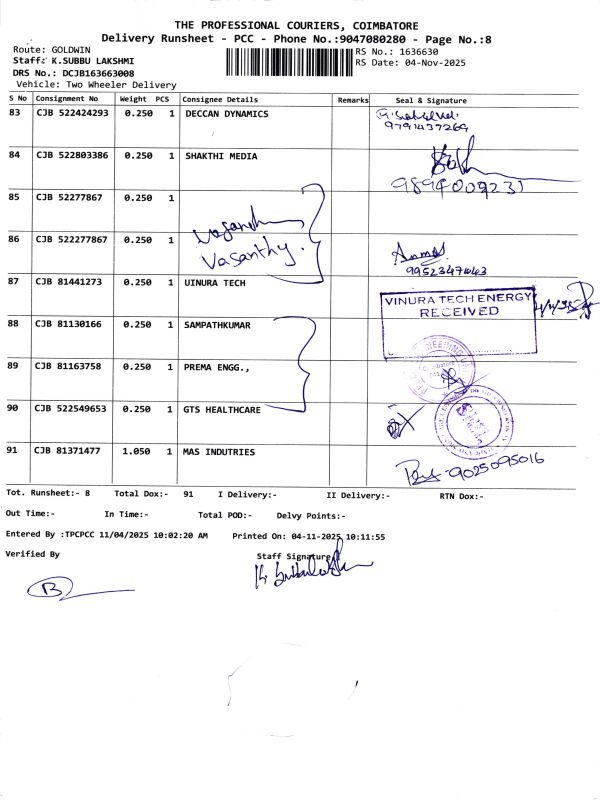 THE PROFESSIONAL COURIERS, COIMBATORE
Delivery Runsheet - PCC - Phone No.:9047080280 - Page No.:8
Route: GOLDWIN
RS No.: 1636630
Staff: K.SUBBU LAKSHMI
RS Date: 04-Nov-2025
DRS No.: DCJB163663008
Vehicle: Two Wheeler Delivery
S No Consignment No Weight PCS Consignee Details Remarks Seal & Signature
83 CJB 522424293 0.250 1 DECCAN DYNAMICS
9791437269
84 CJB 522803386 0.250 1 SHAKTHI MEDIA
9894009231
85 CJB 52277867 0.250 1
86 CJB 522277867 0.250 1
Vasanthy.
9952347443
87 CJB 81441273 0.250 1 UINURA TECH
VINURA TECH ENERGY
RECEIVED
88 CJB 81130166 0.250 1 SAMPATHKUMAR
89 CJB 81163758 0.250 1 PREMA ENGG.,
90 CJB 522549653 0.250 1 GTS HEALTHCARE
91 CJB 81371477 1.050 1 MAS INDUTRIES
9025095016
Tot. Runsheet:- 8 Total Dox:- 91 I Delivery:- II Delivery:- RTN Dox:-
Out Time:- In Time:- Total POD:- Delvy Points:-
Entered By :TPCPCC 11/04/2025 10:02:20 AM Printed On: 04-11-2025 10:11:55
Verified By Staff Signature